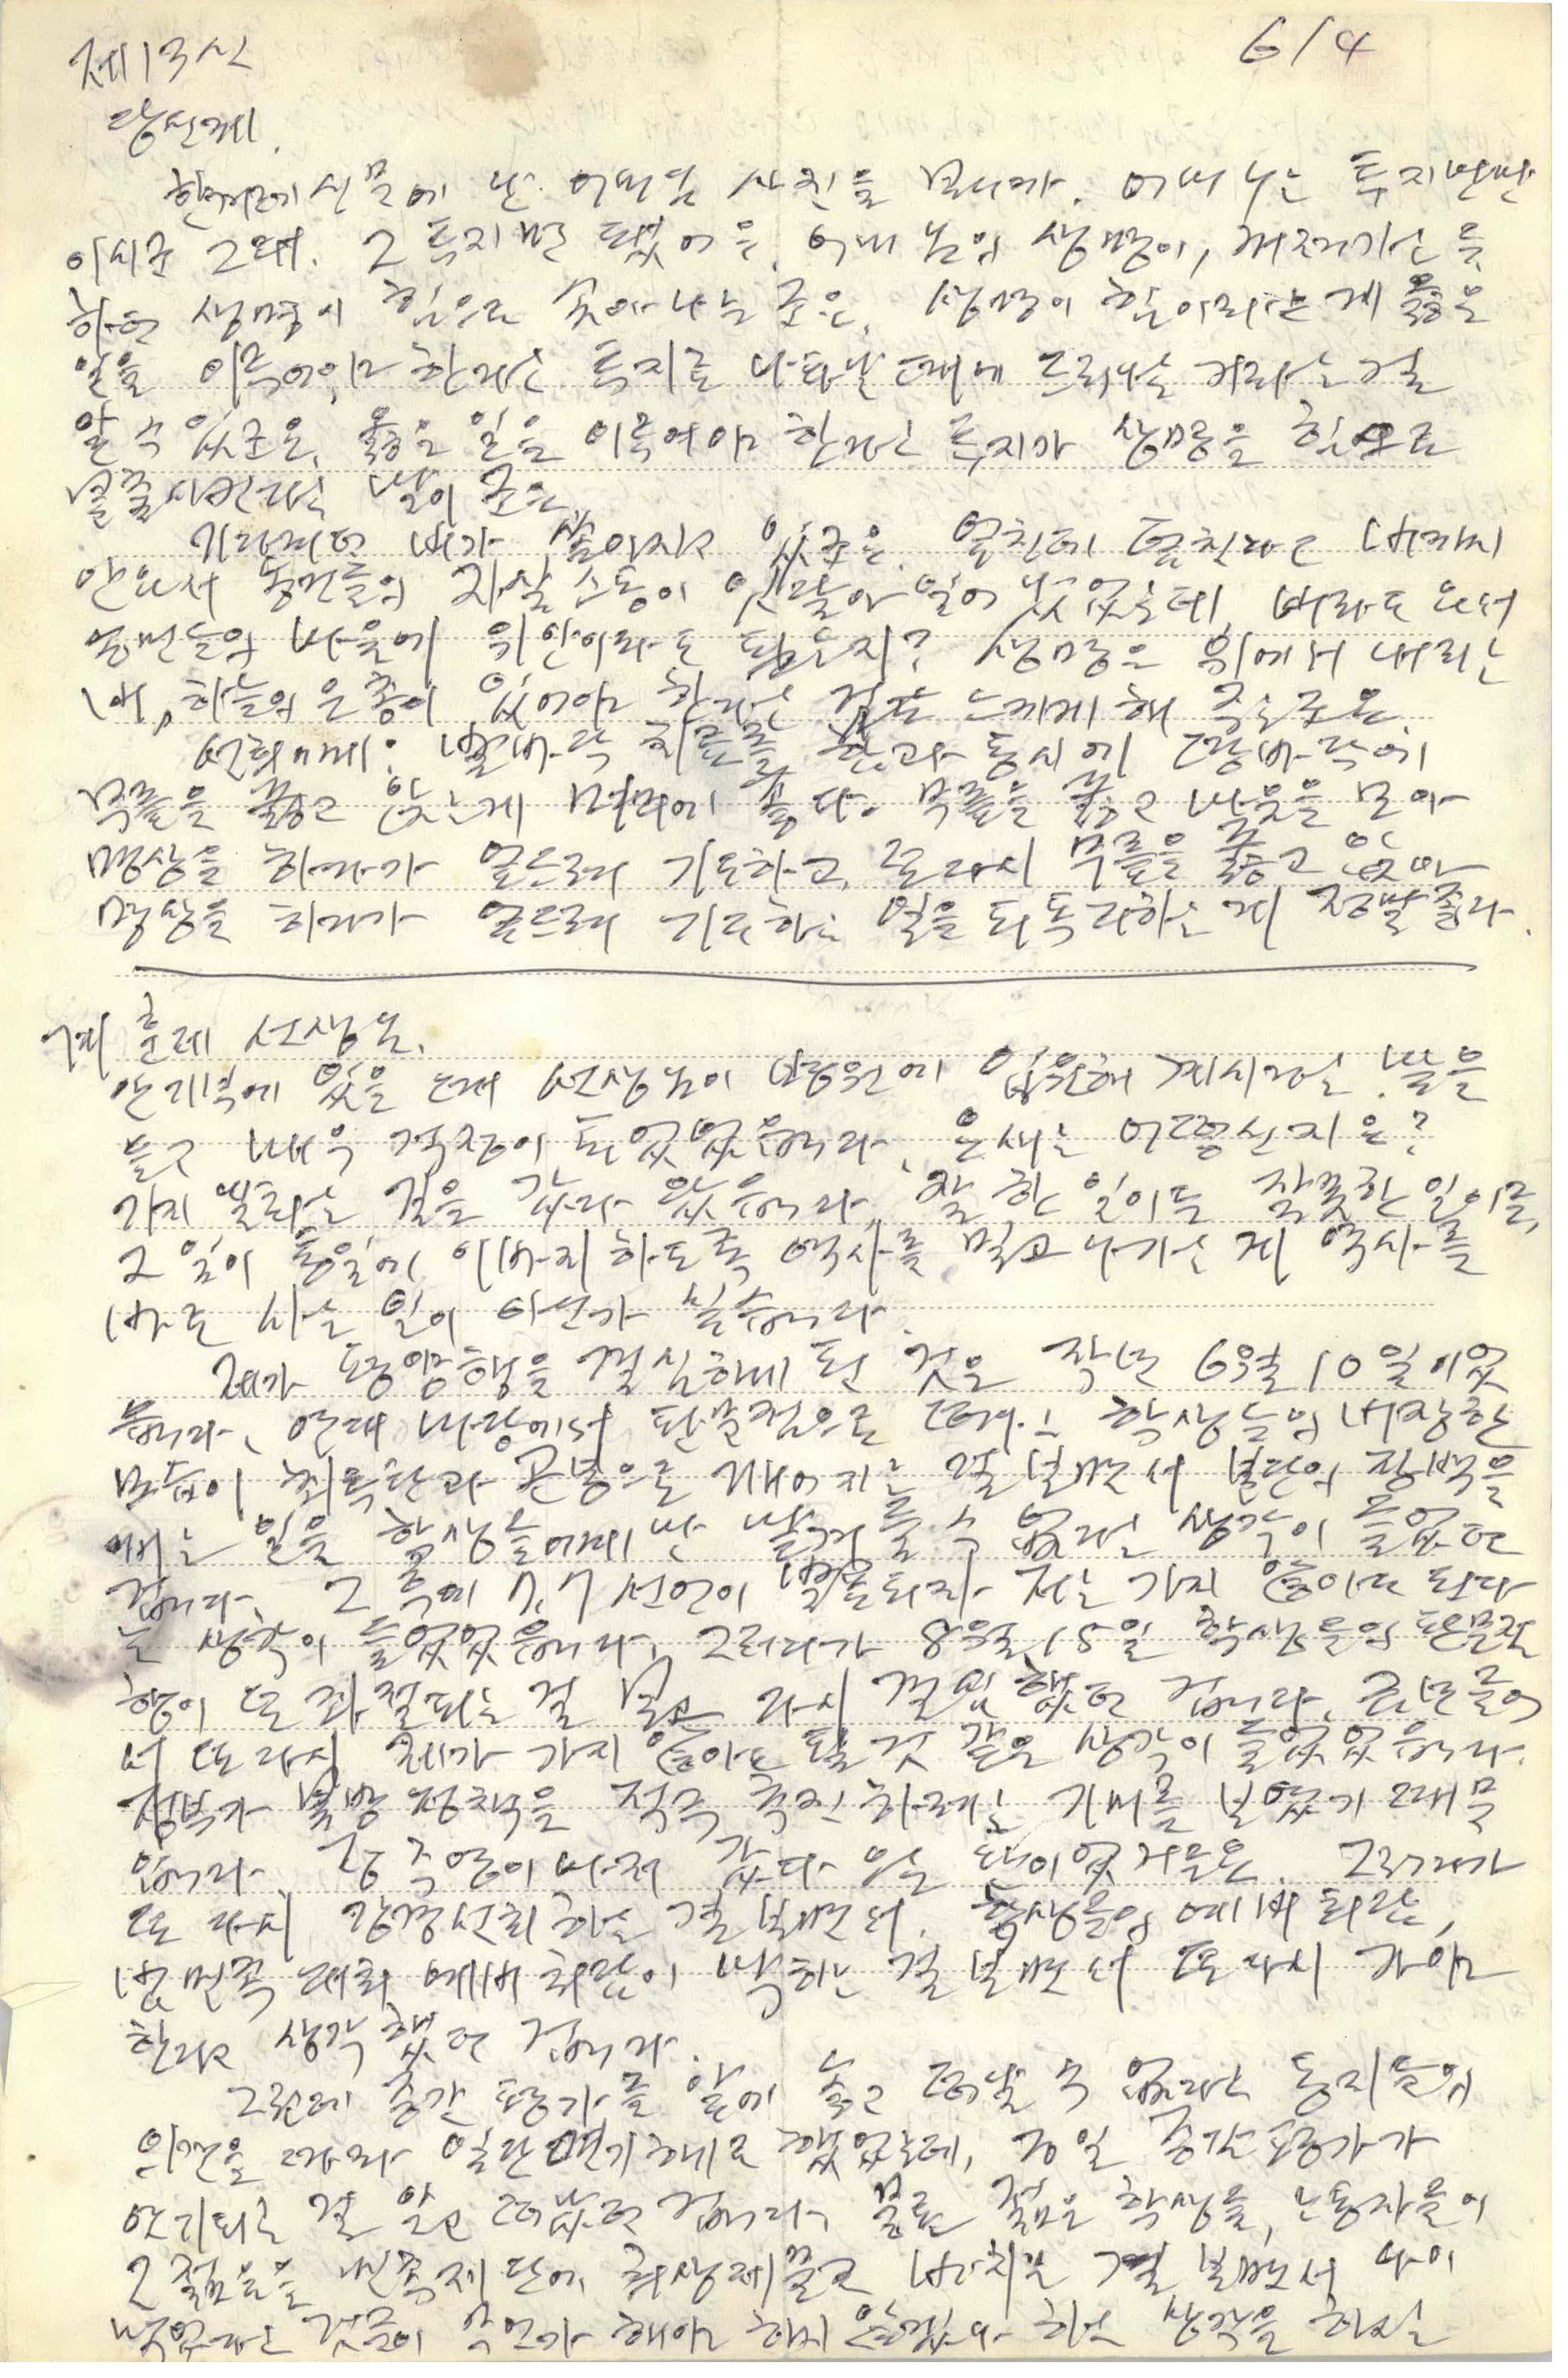 제13신 6/4
당신께.
한겨레신문에 난 어머님 사진을 보니까. 어머니는 투지만만
이시군 그래. 그 투지면 됐어요. 어머님의 생명이,
하면 생명이 힘으로 솟아나는군요. 생명이 힘이라는게 옳은
일을 이루어야 한다는 투지로 나타날 때에 드러나는 거라는 걸
알 수 있군요. 옳은 일을 이루어야 한다는 투지가 생명을 힘으로
분출시킨다는 말이군요.
기다리던 비가 쏟아지고 있군요. 열친데 덮친다고 비마저
안와서 농민들의 자살 소동이 잇달아 일어났었는데, 비라도 와서
농민들의 마음에 위안이라도 될는지? 생명은 위에서 내리는
비, 하늘의 은총이 있어야 한다는 걸 느끼게 해 주는군요.
선희에게: 발바닥 치료를 함과 동시에 땅바닥에
무릎을 꿇고 앉는게 몸에 좋다. 무릎을 꿇고 마음을 모아
명상을 하다가 엎드려 기도하고, 또다시 무릎을 꿇고 앉아
명상을 하다가 엎드려 기도하는 일을 되풀이하는 게 정말 좋다.
계훈제 선생님.
안기부에 있을 때 선생님이 병원에 입원해 계시다는 말을
듣고 매우 걱정이 되었었습니다. 요새는 어떠신지요?
가지 말라는 길을 갔다 왔습니다. 잘 한 일이든 잘못한 일이든,
그 일이 통일에 이바지하도록 역사를 밀고 나가는 게 역사를
바로 사는 일이 아닌가 싶습니다.
제가 평양행을 결심하게 된 것은 작년 6월 10일이었
습니다. 연대 마당에서 판문점으로 떠나는 학생들의 비장한
모습이 최루탄과 곤봉으로 깨어지는 걸 보면서 분단의 장벽을
깨는 일을 학생들에게만 맡겨 둘 수 없다는 생각이 들었던
겁니다. 그 후에 7.7 선언이 발표되자 저는 가지 않아도 된다
는 생각이 들었었습니다. 그러다가 8월 15일 학생들의 판문점
행이 또 좌절되는 걸 보고 다시 결심했던 겁니다. 금년 들어
서 또 다시 제가 가지 않아도 될 것 같은 생각이 들었었습니다.
정부가 북방정책을 적극 추진하려는 기미를 보였기 때문
입니다. 정주영이 마저 갔다 오는 판이었거든요. 그러다가
또 다시 강경선회하는 걸 보면서, 학생들의 예비회담,
범민족 대회 예비회담이 막히는 걸 보면서 또 다시 가야
한다고 생각했던 겁니다.
그런데 중간 평가를 앞에 놓고 떠날 수 없다는 동지들의
의견을 따라 일단 연기하기로 했었는데, 중간 평가가
연기되는 걸 알고 떠났던 겁니다. 물론 젊은 학생들, 노동자들이
그 젊음을 민족제단에 희생제물로 바치는 걸 보면서 나이
먹었다는 것들이 무언가 해야 하지 않겠나 하는 생각을 하던